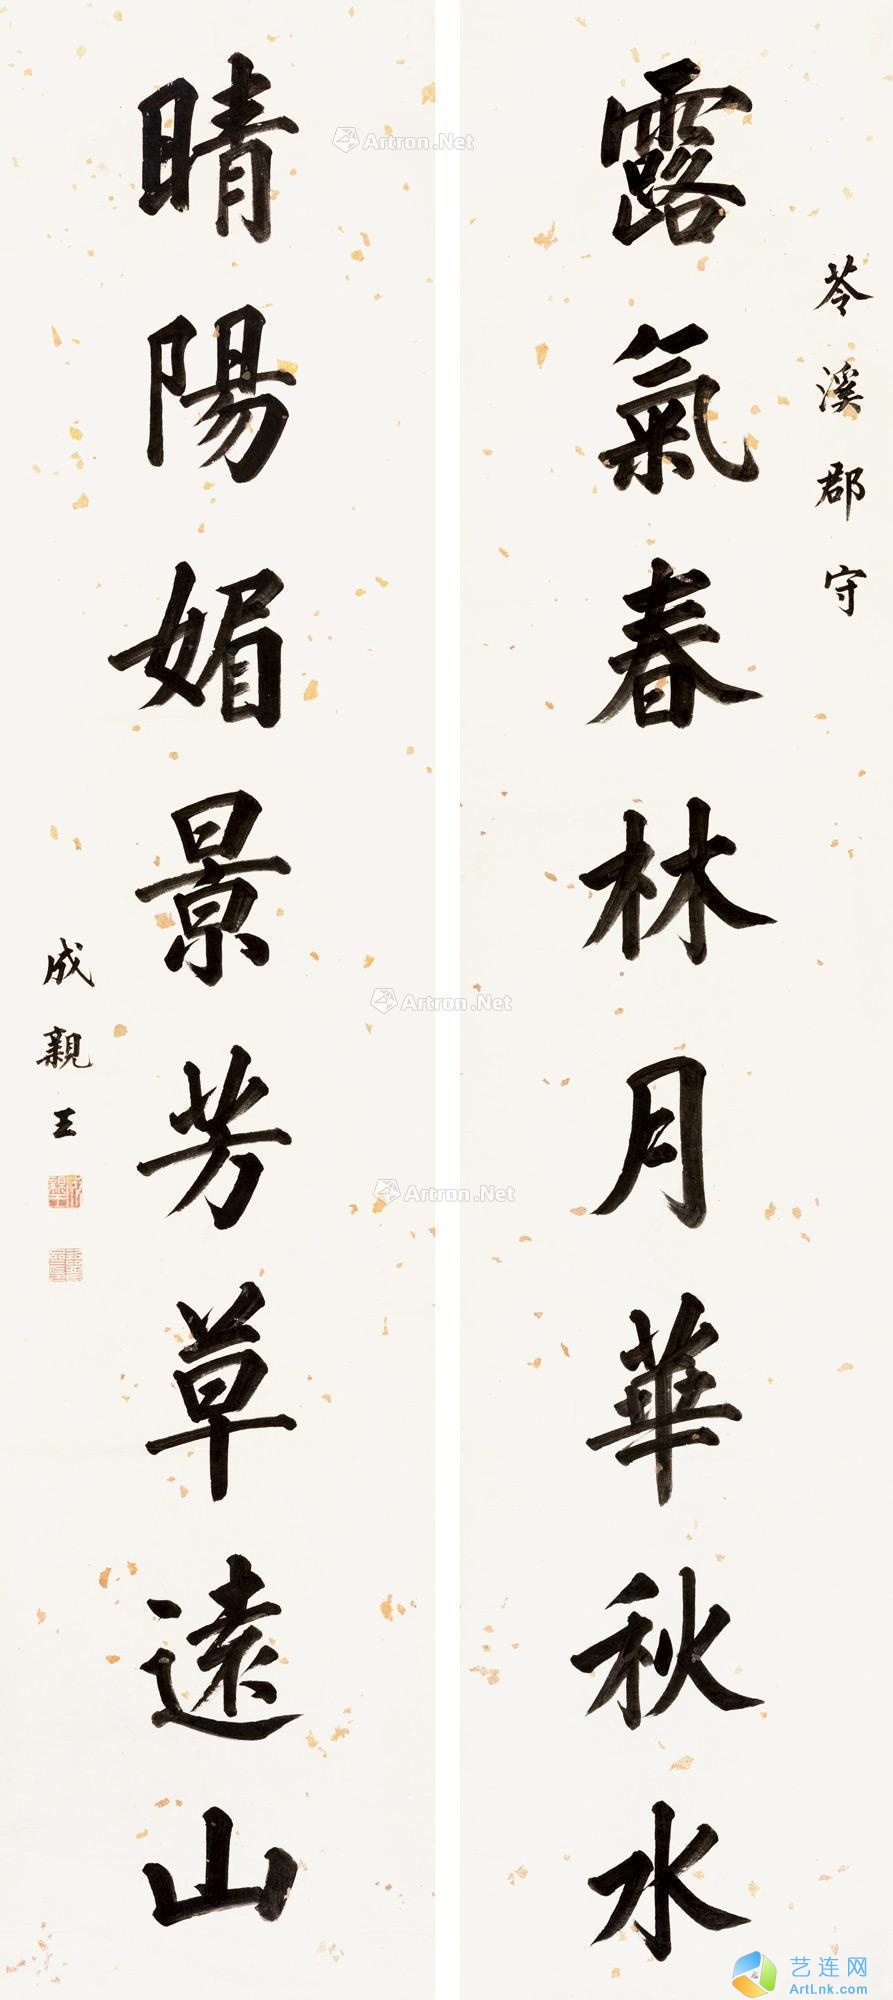 苓溪郡守
露氣春林月華秋水
晴陽媚景芳草遠山
成親王
Artron.Net
Artron.Net
Artron.Net
艺连网
ArtLnk.com